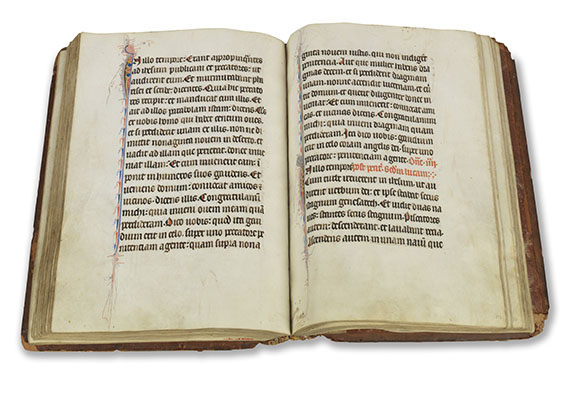 In illo tempore: Erant appropinquantes
ad ihesum publicani et peccatores: ut
audirent illum. Et murmurabant pha
risei et scribe: dicentes. Quia hic peccato
res recipit: et manducat cum illis. Et
ait ad illos parabolam istam: dicens. Quis
ex vobis homo qui habet centum oves:
et si perdiderit unam ex illis: non ne di
mittit nonaginta novem in deserto: et
vadit ad illam que perierat: donec inve
niat illam: Et cum invenerit eam: im
ponit in humeros suos gaudens. Et
veniens domum: convocat amicos et
vicinos: dicens illis. Congratulamini
michi: quia inveni ovem meam que
perdideram. Dico vobis: quod ita gau
dium erit in celo: super uno peccatore pe
nitenciam agente: quam supra nona
ginta novem iustis: qui non indigent
penitencia. Aut que mulier habens dra
gmas decem: et si perdiderit dragmam
unam: nonne accendit lucernam: et everrit
domum: et querit diligenter donec in
veniat: Et cum invenerit: convocat ami
cas et vicinas: dicens. Congratulamini
michi: quia inveni dragmam quam
perdideram. Ita dico vobis: gaudium
erit in celo coram angelis dei: super uno
peccatore: penitenciam agente.
In illo tempore: secundum lucam:
Cum turbe irruerent in ihesum: ut au
dirent verbum dei: et ipse stabat secus
stagnum genesareth. Et vidit duas na
ves: stantes secus stagnum. Piscatores
autem descenderant: et lavabant recia.
Ascendens autem in unam navim: que